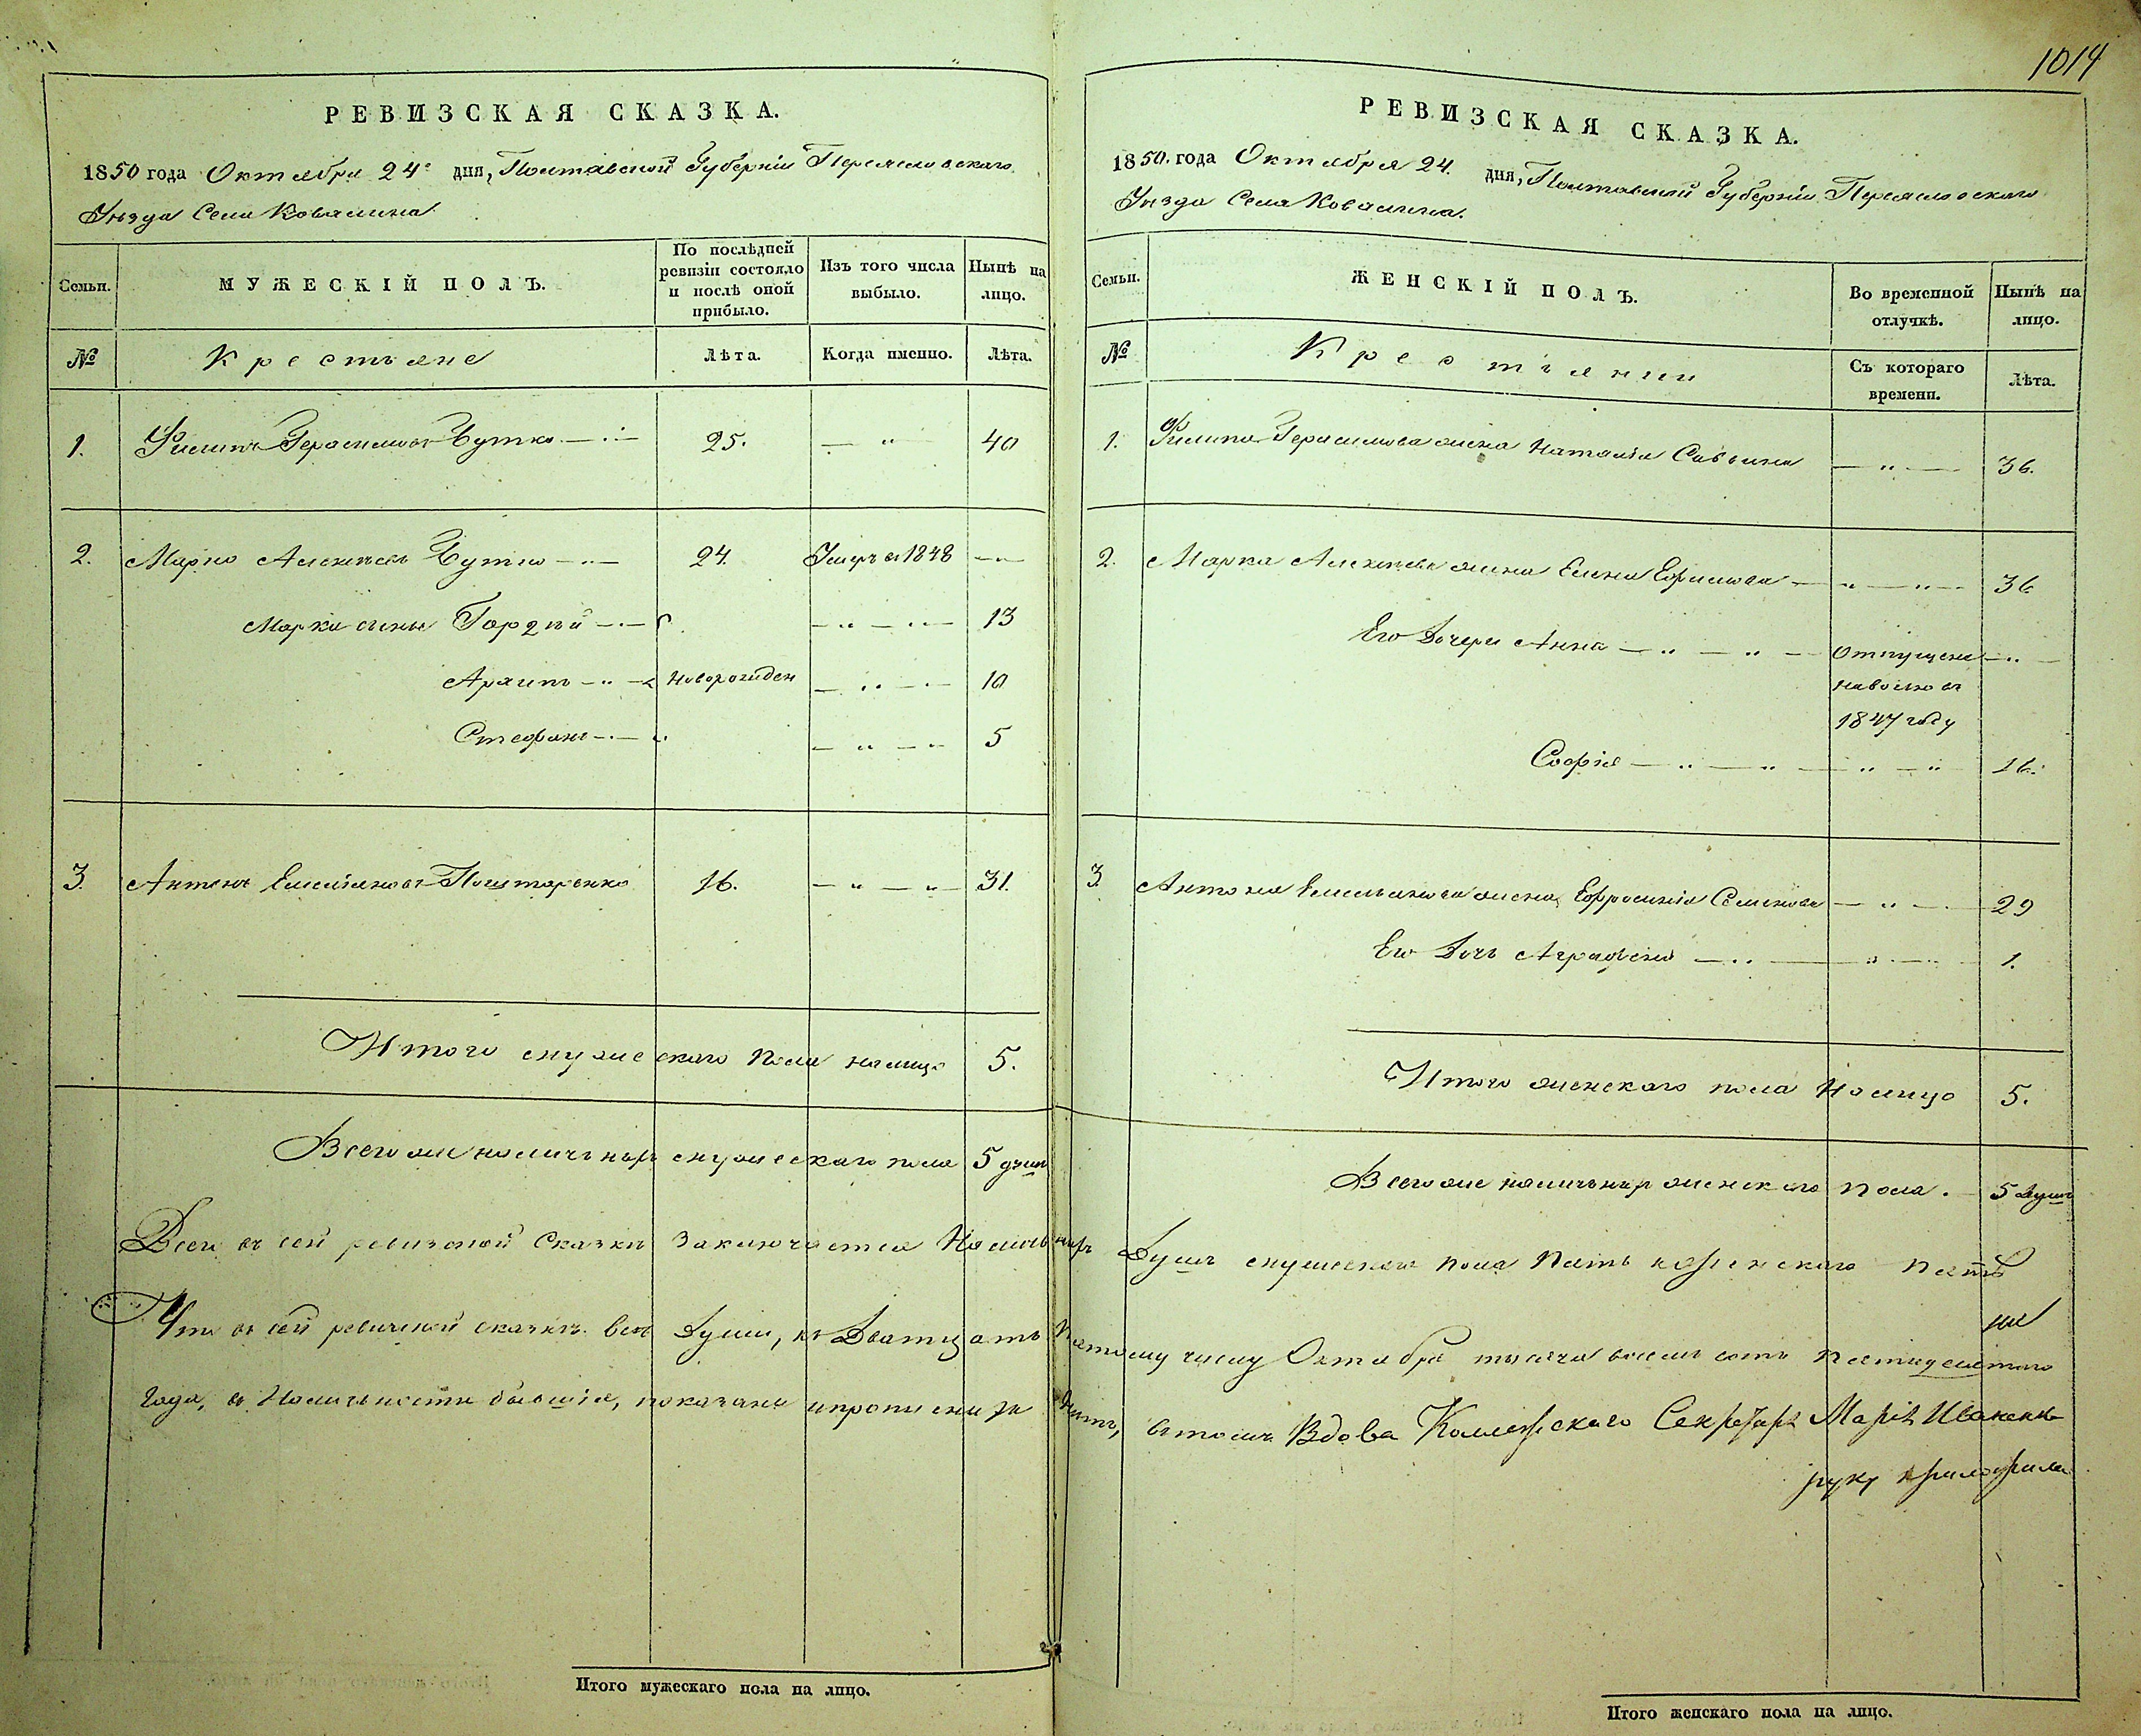 1014
РЕВИЗСКАЯ СКАЗКА.
1850 года Октября 24го дня, Полтавской Губерніи Переяславскаго
Уѣзда Села Ковалина.
Семьи.
МУЖЕСКІЙ ПОЛЪ.
По послѣдней ревизіи состояло и послѣ оной прибыло.
Изъ того числа выбыло.
Нынѣ на лицо.
№
Крестьяне
Лѣта.
Когда именно.
Лѣта.
1. Филипъ Герасимовъ Чутко 25. — " — 40
2. Марко Алексѣевъ Чутко 24. Умеръ въ 1848 — —
Марка сыны Гордѣй — " — " — 13
Архипъ — " — новорожден — " — 10
Стефанъ — " — " — 5
3. Антонъ Емеліяновъ 16. — " — " — 31.
Итого мужескаго пола налицо 5.
Всего же наличныхъ мужескаго пола 5 душъ
РЕВИЗСКАЯ СКАЗКА.
1850. года Октября 24. дня, Полтавской Губерніи Переяславскаго
Уѣзда Села Ковалина.
Семьи.
ЖЕНСКІЙ ПОЛЪ.
Во временной отлучкѣ.
Нынѣ на лицо.
№
Крестьянки
Съ котораго времени.
Лѣта.
1. Филипа Герасимова жена Наталія Саввина — " — 36.
2. Марка Алексѣева жена Елена Ефимова — " — " — 36
Его Дочери Анна — " — " — отпущена — " —
на волю въ
1847 году
Софія — " — " — " — " 16.
3. Антона Емельянова жена Ефросинія Семенова — " — 29
Его Дочь Аграфена — " — " — 1.
Итого женскаго пола налицо 5.
Всего же наличныхъ женскаго пола. 5 душъ
Всего въ сей ревизской Сказкѣ заключается Наличныхъ Душъ мужескаго пола пять и женскаго пять
Что въ сей ревизской сказкѣ всѣ Души, къ Двадцать пятому числу Октября тысяча восемь сотъ пятидесятаго
года, въ Наличности бывшія, показаны и пропи въ томъ Вдова Коллежскаго Секретаря Марія Иваненко
руку приложила
Итого мужескаго пола на лицо.
Итого женскаго пола на лицо.